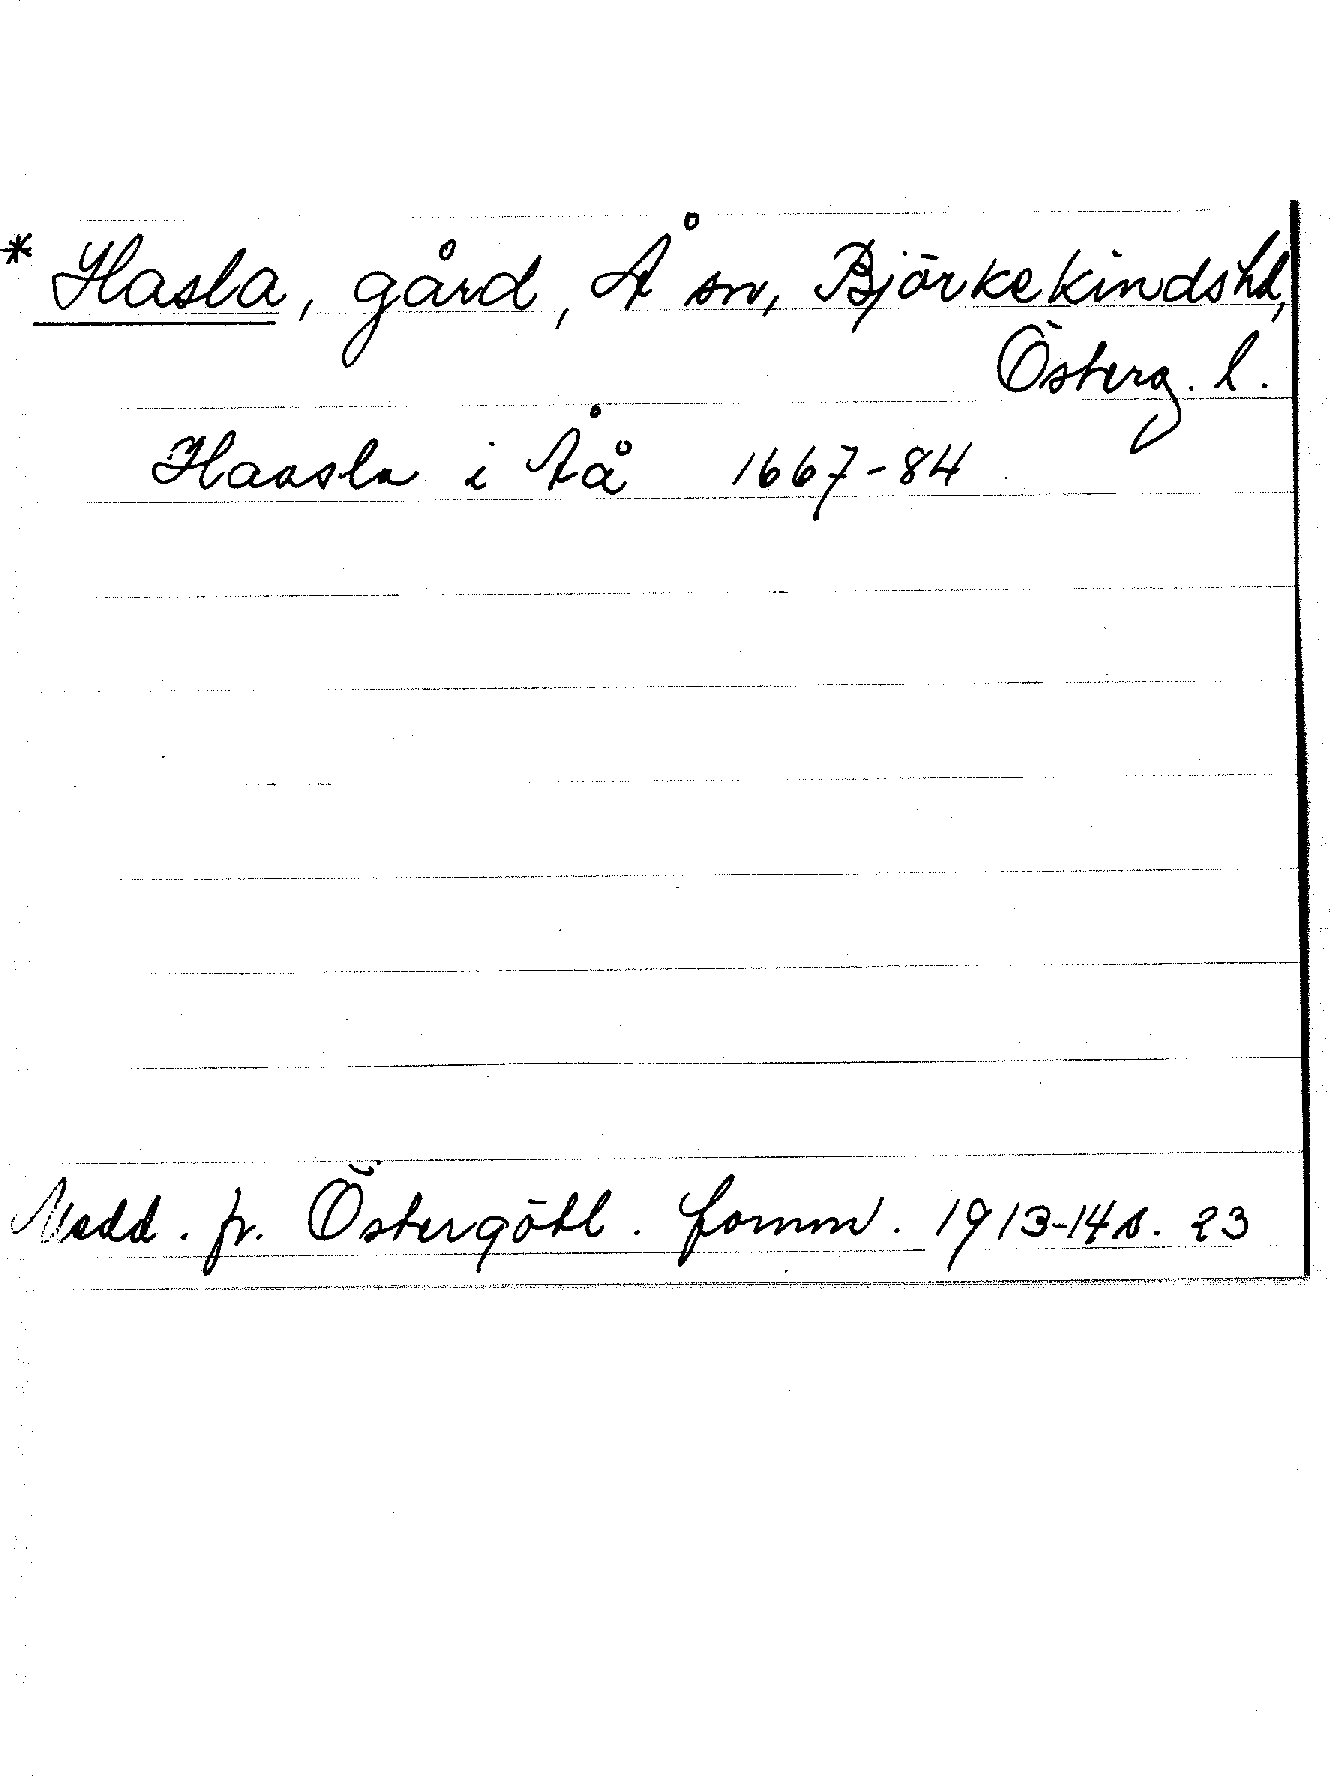 * Hasla, gård, Å sn, Björkekinds hd,
Österg. l.
Haasla i Åå 1667-84
Medd. fr. Östergötl. fornm. 1913-14 s. 23